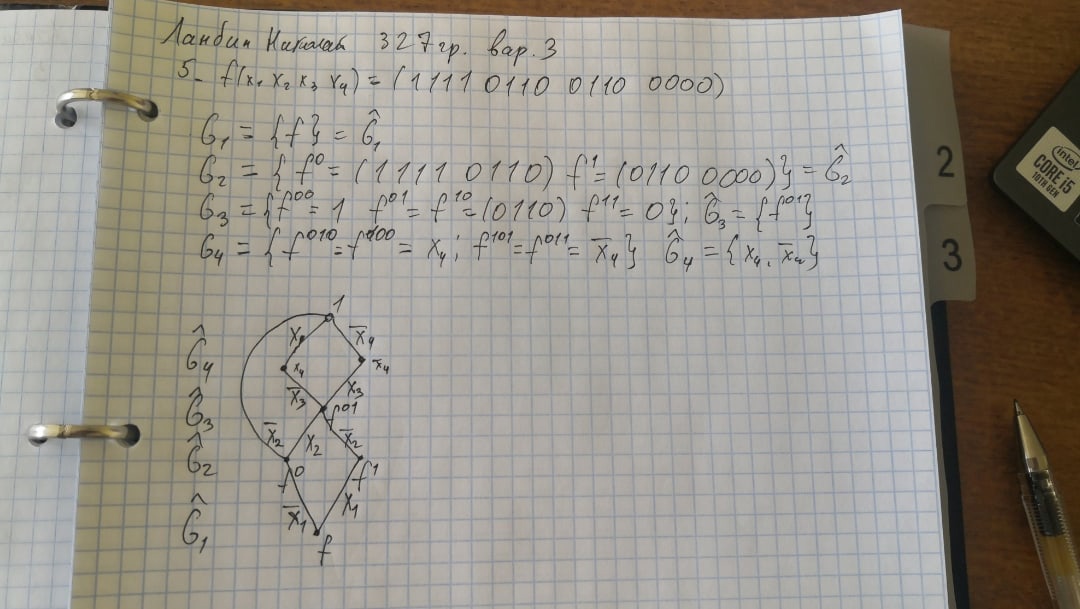 Ланбин Николай 327гр. вар. 3
5. f(x₁ x₂ x₃ x₄) = (1111 0110 0110 0000)
G₁ = {f} = Ĝ₁
G₂ = {f⁰ = (1111 0110) f¹ = (0110 0000)} = Ĝ₂
G₃ = {f⁰⁰ = 1 f⁰¹ = f¹⁰ = (0110) f¹¹ = 0}; Ĝ₃ = {f⁰¹}
G₄ = {f⁰¹⁰ = f¹⁰⁰ = x₄; f¹⁰¹ = f⁰¹¹ = x̄₄} Ĝ₄ = {x₄, x̄₄}
1
x₄ x̄₄
Ĝ₄ x₄ x̄₄
x̄₃ x₃
Ĝ₃ f⁰¹
x̄₂ x₂ x̄₂
Ĝ₂ f⁰ f¹
x̄₁ x₁
Ĝ₁ f
2
3
intel
CORE i5
10TH GEN